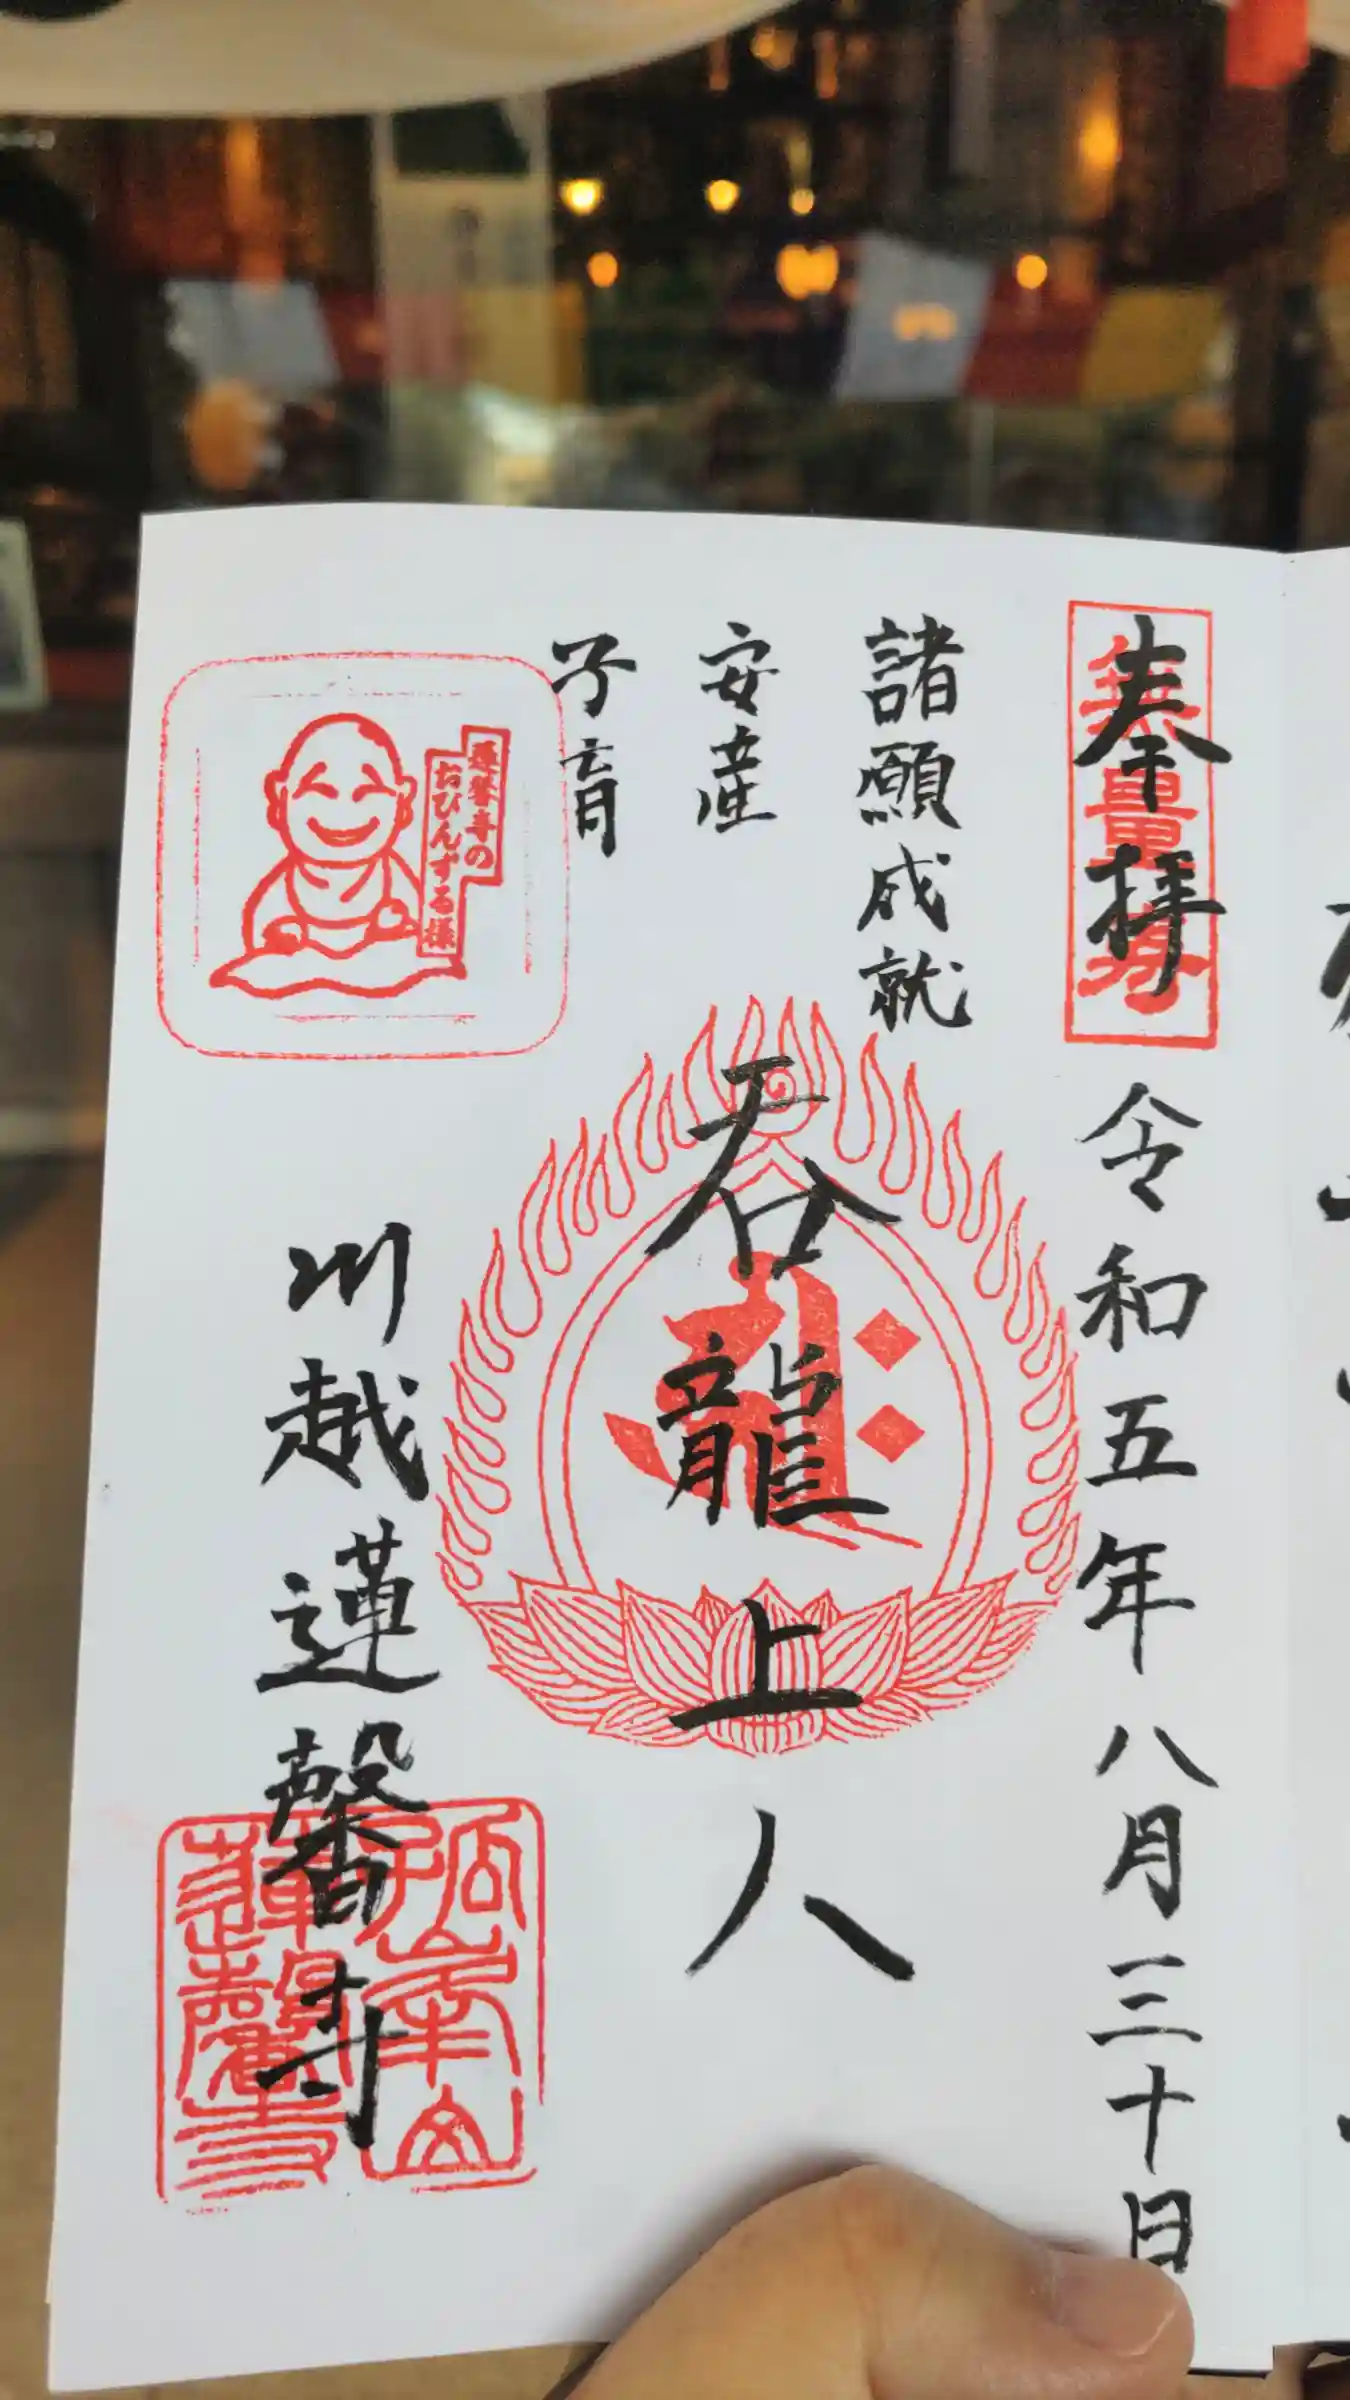 奉拝
無量寿
令和五年八月三十日
諸願成就
安産
子育
呑龍上人
蓮馨寺の
おびんずる様
川越蓮馨寺
孤峯山
蓮馨寺